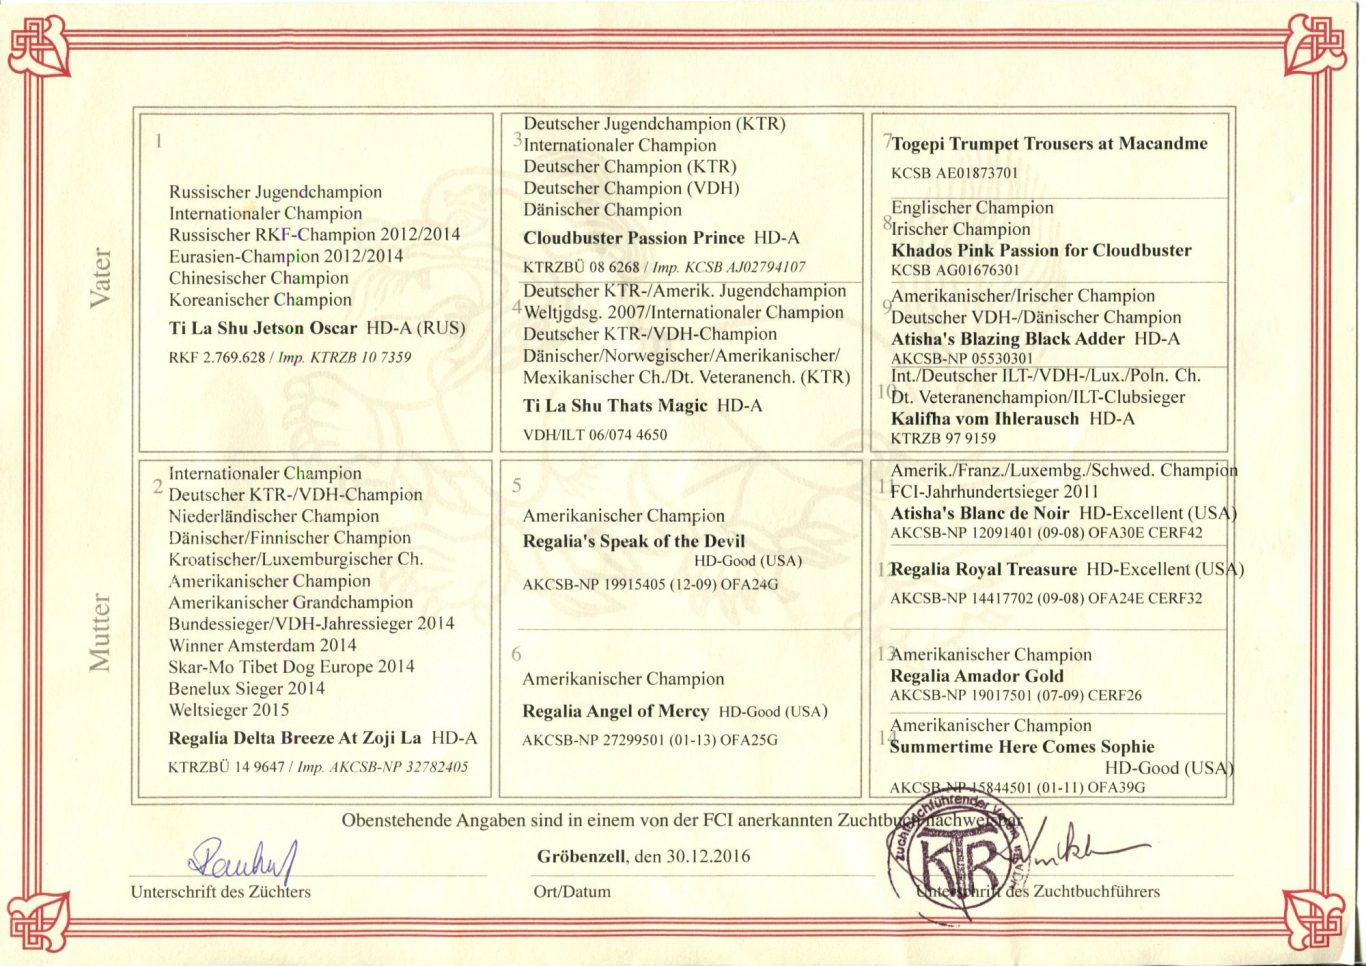 Vater
1
Russischer Jugendchampion
Internationaler Champion
Russischer RKF-Champion 2012/2014
Eurasien-Champion 2012/2014
Chinesischer Champion
Koreanischer Champion
Ti La Shu Jetson Oscar HD-A (RUS)
RKF 2.769.628 / Imp. KTRZB 10 7359
3
Deutscher Jugendchampion (KTR)
Internationaler Champion
Deutscher Champion (KTR)
Deutscher Champion (VDH)
Dänischer Champion
Cloudbuster Passion Prince HD-A
KTRZBÜ 08 6268 / Imp. KCSB AJ02794107
4
Deutscher KTR-/Amerik. Jugendchampion
Weltjgdsg. 2007/Internationaler Champion
Deutscher KTR-/VDH-Champion
Dänischer/Norwegischer/Amerikanischer/
Mexikanischer Ch./Dt. Veteranench. (KTR)
Ti La Shu Thats Magic HD-A
VDH/ILT 06/074 4650
7
Togepi Trumpet Trousers at Macandme
KCSB AE01873701
8
Englischer Champion
Irischer Champion
Khados Pink Passion for Cloudbuster
KCSB AG01676301
9
Amerikanischer/Irischer Champion
Deutscher VDH-/Dänischer Champion
Atisha's Blazing Black Adder HD-A
AKCSB-NP 05530301
10
Int./Deutscher ILT-/VDH-/Lux./Poln. Ch.
Dt. Veteranenchampion/ILT-Clubsieger
Kalifha vom Ihlerausch HD-A
KTRZB 97 9159
Mutter
2
Internationaler Champion
Deutscher KTR-/VDH-Champion
Niederländischer Champion
Dänischer/Finnischer Champion
Kroatischer/Luxemburgischer Ch.
Amerikanischer Champion
Amerikanischer Grandchampion
Bundessieger/VDH-Jahressieger 2014
Winner Amsterdam 2014
Skar-Mo Tibet Dog Europe 2014
Benelux Sieger 2014
Weltsieger 2015
Regalia Delta Breeze At Zoji La HD-A
KTRZBÜ 14 9647 / Imp. AKCSB-NP 32782405
5
Amerikanischer Champion
Regalia's Speak of the Devil
HD-Good (USA)
AKCSB-NP 19915405 (12-09) OFA24G
6
Amerikanischer Champion
Regalia Angel of Mercy HD-Good (USA)
AKCSB-NP 27299501 (01-13) OFA25G
11
Amerik./Franz./Luxembg./Schwed. Champion
FCI-Jahrhundertsieger 2011
Atisha's Blanc de Noir HD-Excellent (USA)
AKCSB-NP 12091401 (09-08) OFA30E CERF42
12
Regalia Royal Treasure HD-Excellent (USA)
AKCSB-NP 14417702 (09-08) OFA24E CERF32
13
Amerikanischer Champion
Regalia Amador Gold
AKCSB-NP 19017501 (07-09) CERF26
14
Amerikanischer Champion
Summertime Here Comes Sophie
HD-Good (USA)
AKCSB-NP 15844501 (01-11) OFA39G
Obenstehende Angaben sind in einem von der FCI anerkannten Zuchtbuch nachweisbar
Gröbenzell, den 30.12.2016
Unterschrift des Züchters
Ort/Datum
Unterschrift des Zuchtbuchführers
Zuchtbuchführender Verein
KTR